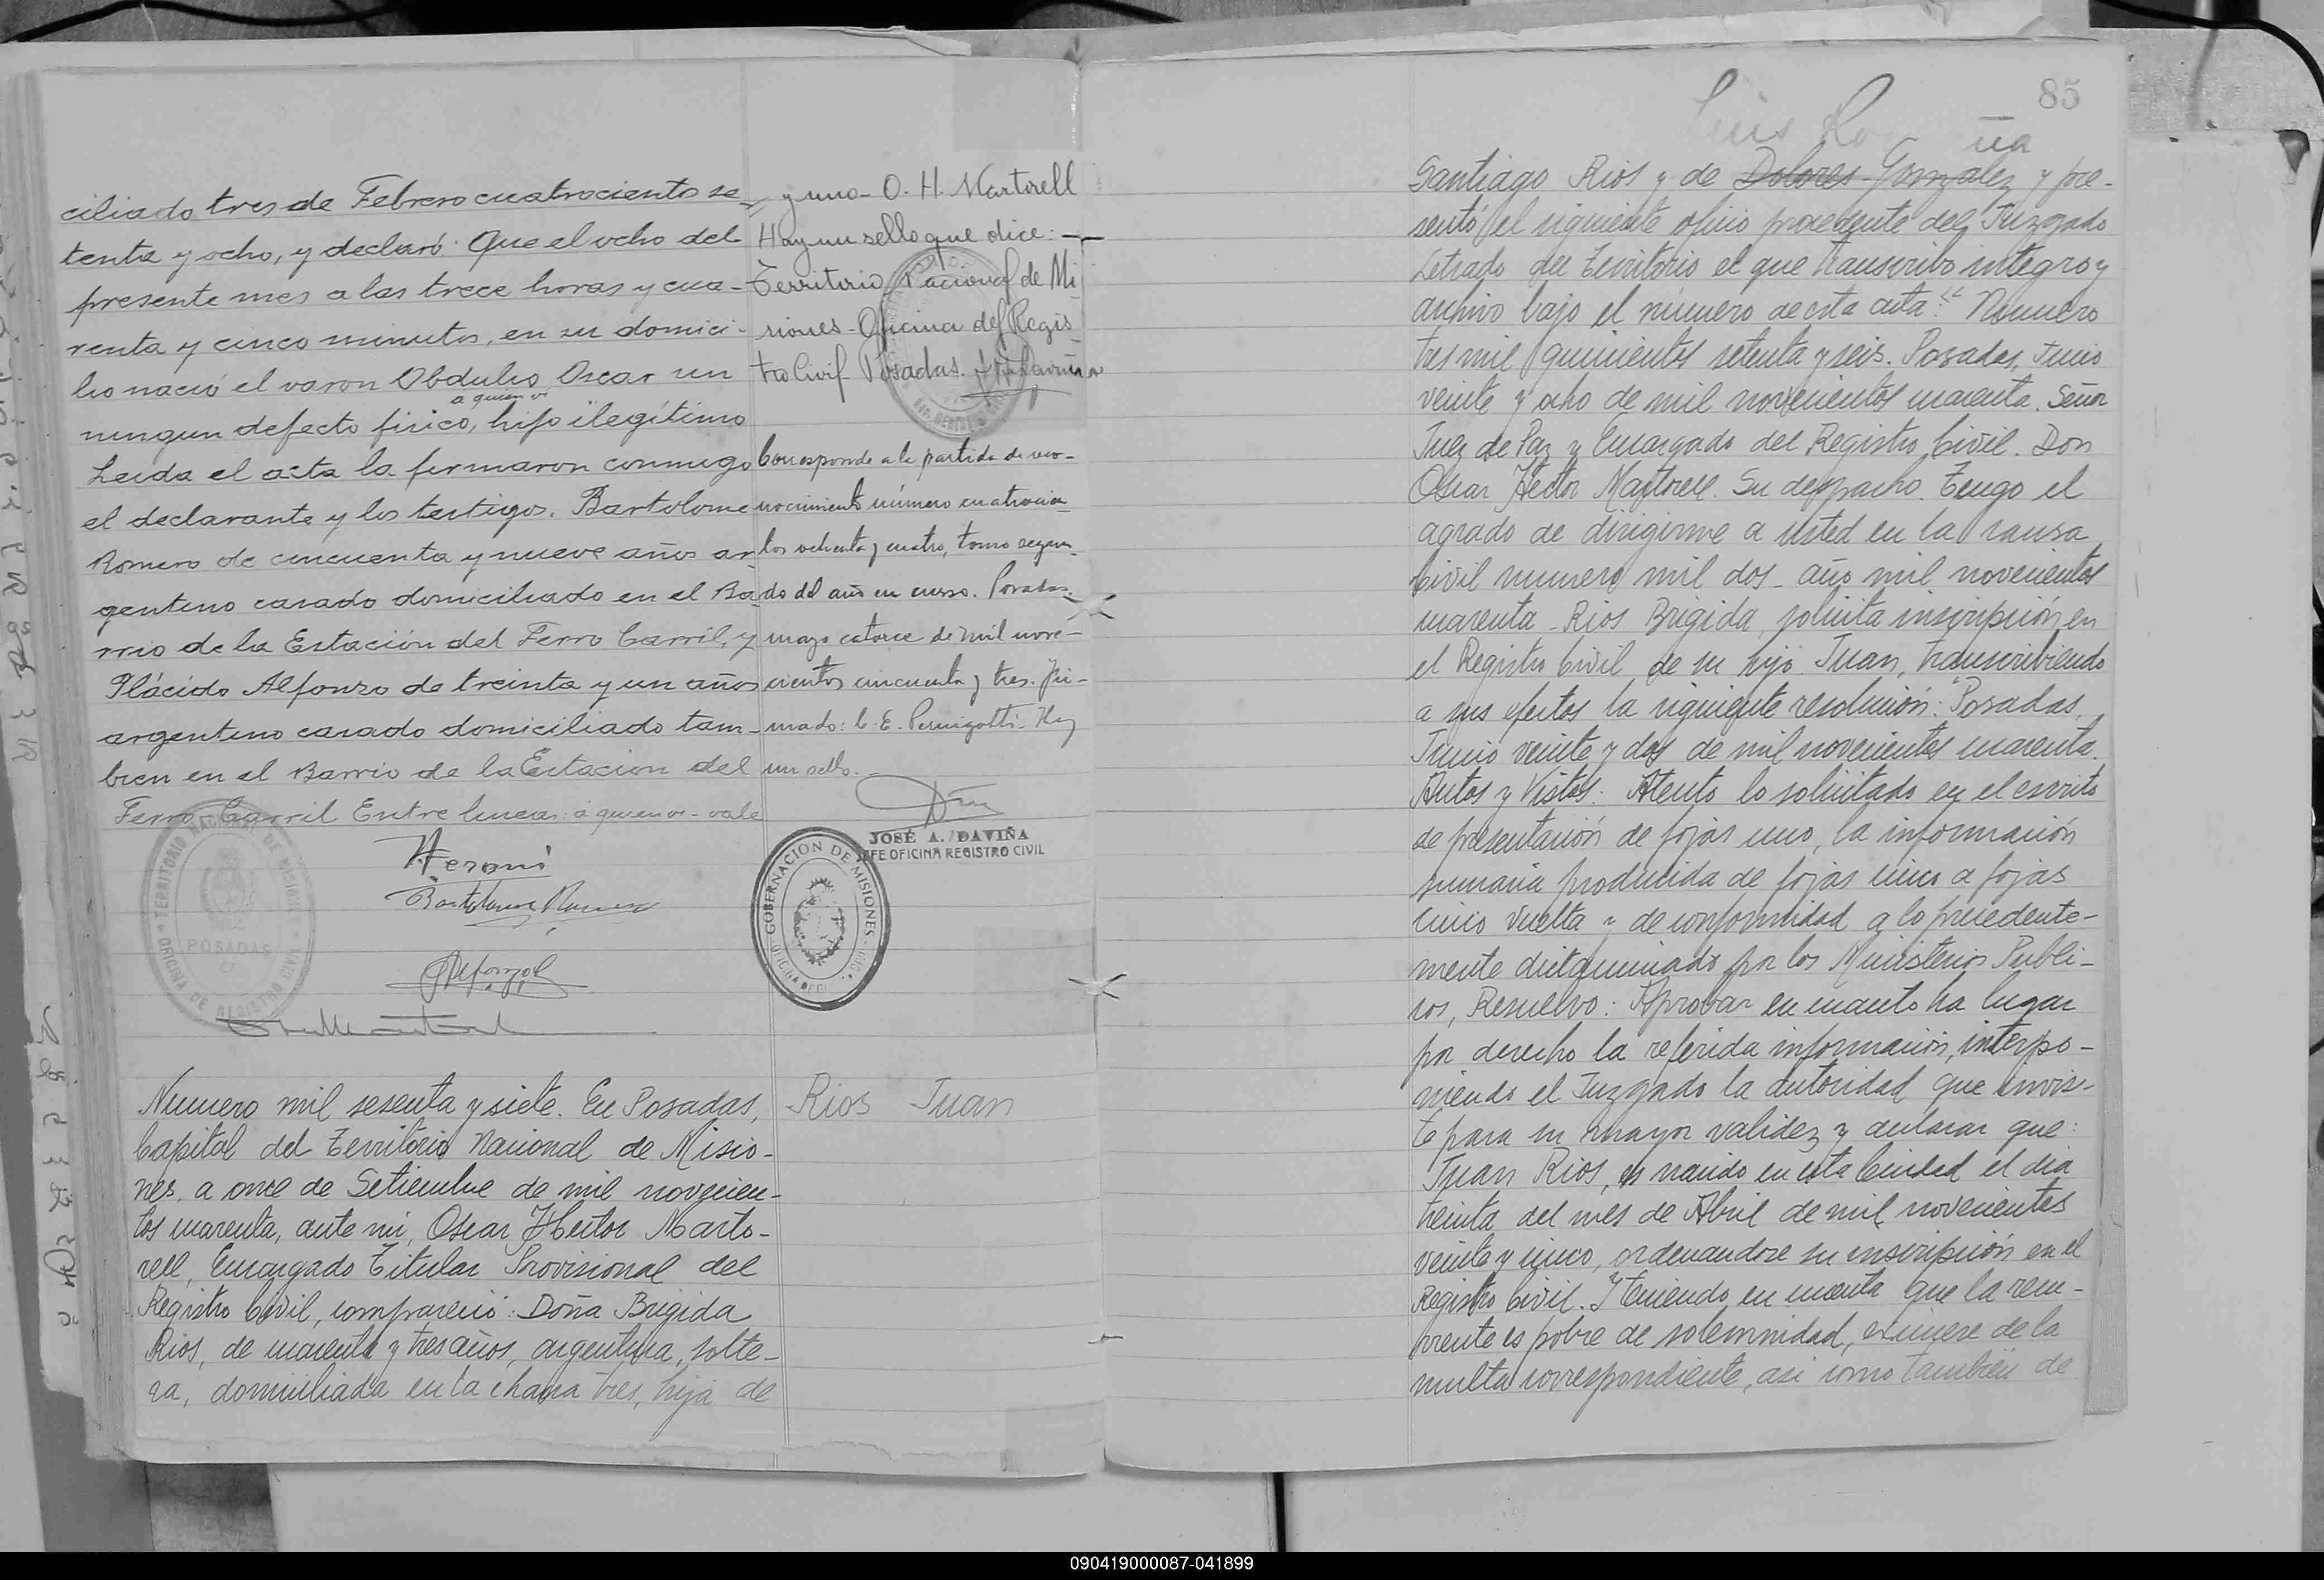 ciliado tres de Febrero cuatrociento se-
tenta y ocho, y declaró: Que el ocho del
presente mes a las trece horas y cua-
renta y cinco minutos, en su domici-
lio nació el varon Obdulio Oscar un
a quien vi
ningun defecto fisico, hijo ilegítimo
Leida el acta la firmaron conmigo
el declarante y los testigos. Bartolome
Romero de cincuenta y nueve años ar-
gentino casado domiciliado en el Ba-
rrio de la Estación del Ferro Carril, y
Plácido Alfonzo de treinta y un años
argentino casado domiciliado tam-
bien en el Barrio de la Estacion del
Ferro Carril Entre lineas: a quien vi - vale
Bartolome Romero
TERRITORIO NACIONAL DE MISIONES
POSADAS
OFICINA DE REGISTRO CIVIL
y uno - O. H. Martorell
Hay un sello que dice: -
Territorio Nacional de Mi
siones - Oficina del Regis
tro Civil Posadas.
Corresponde a la partida de reco-
nocimiento número cuatrocien-
tos ochenta y cuatro, tomo segun-
do del año en curso. Posadas,
mayo catorce de mil nove-
cientos cincuenta y tres. Fir-
mado: C. E. Pernigotti. Hay
un sello.
JOSÉ A. DAVIÑA
JEFE OFICINA REGISTRO CIVIL
GOBERNACION DE MISIONES
Numero mil sesenta y siete. En Posadas,
Capital del Territorio Nacional de Misio-
nes, a once de Setiembre de mil novecien-
tos cuarenta, ante mi, Oscar Hector Marto-
rell, Encargado Titular Provisional del
Registro Civil, compareció: Doña Brigida
Rios, de cuarenta y tres años, argentina, solte-
ra, domiciliada en la chacra tres, hija de
Rios Juan
85
Santiago Rios y de Dolores Gonzalez y pre-
sentó el siguiente oficio procedente del Juzgado
Letrado del Territorio el que transcribo integro y
archivo bajo el número de esta acta: "Numero
tres mil quinientos setenta y seis. Posadas, Junio
veinte y ocho de mil novecientos cuarenta. Señor
Juez de Paz y Encargado del Registro Civil. Don
Oscar Hector Martorell. Su despacho. Tengo el
agrado de dirigirme a usted en la causa
civil numero mil dos - año mil novecientos
cuarenta - Rios Brigida, solicita inscripción en
el Registro Civil de su hijo Juan, transcribiendo
a sus efectos la siguiente resolución: "Posadas,
Junio veinte y dos de mil novecientos cuarenta.
Autos y Vistos: Atento lo solicitado en el escrito
de presentación de fojas uno, la información
sumaria producida de fojas cinco a fojas
cinco vuelta y de conformidad a lo precedente-
mente dictaminado por los Ministerios Publi-
cos, Resuelvo: Aprobar en cuanto ha lugar
por derecho la referida información, interpo-
niendo el Juzgado la autoridad que invis-
te para su mayor validez y declarar que:
Juan Rios, es nacido en esta Ciudad el dia
treinta del mes de Abril de mil novecientos
veinte y cinco, ordenandose su inscripción en el
Registro Civil. Y teniendo en cuenta que la recu-
rrente es pobre de solemnidad, eximese de la
multa correspondiente, asi como tambien de
090419000087-041899